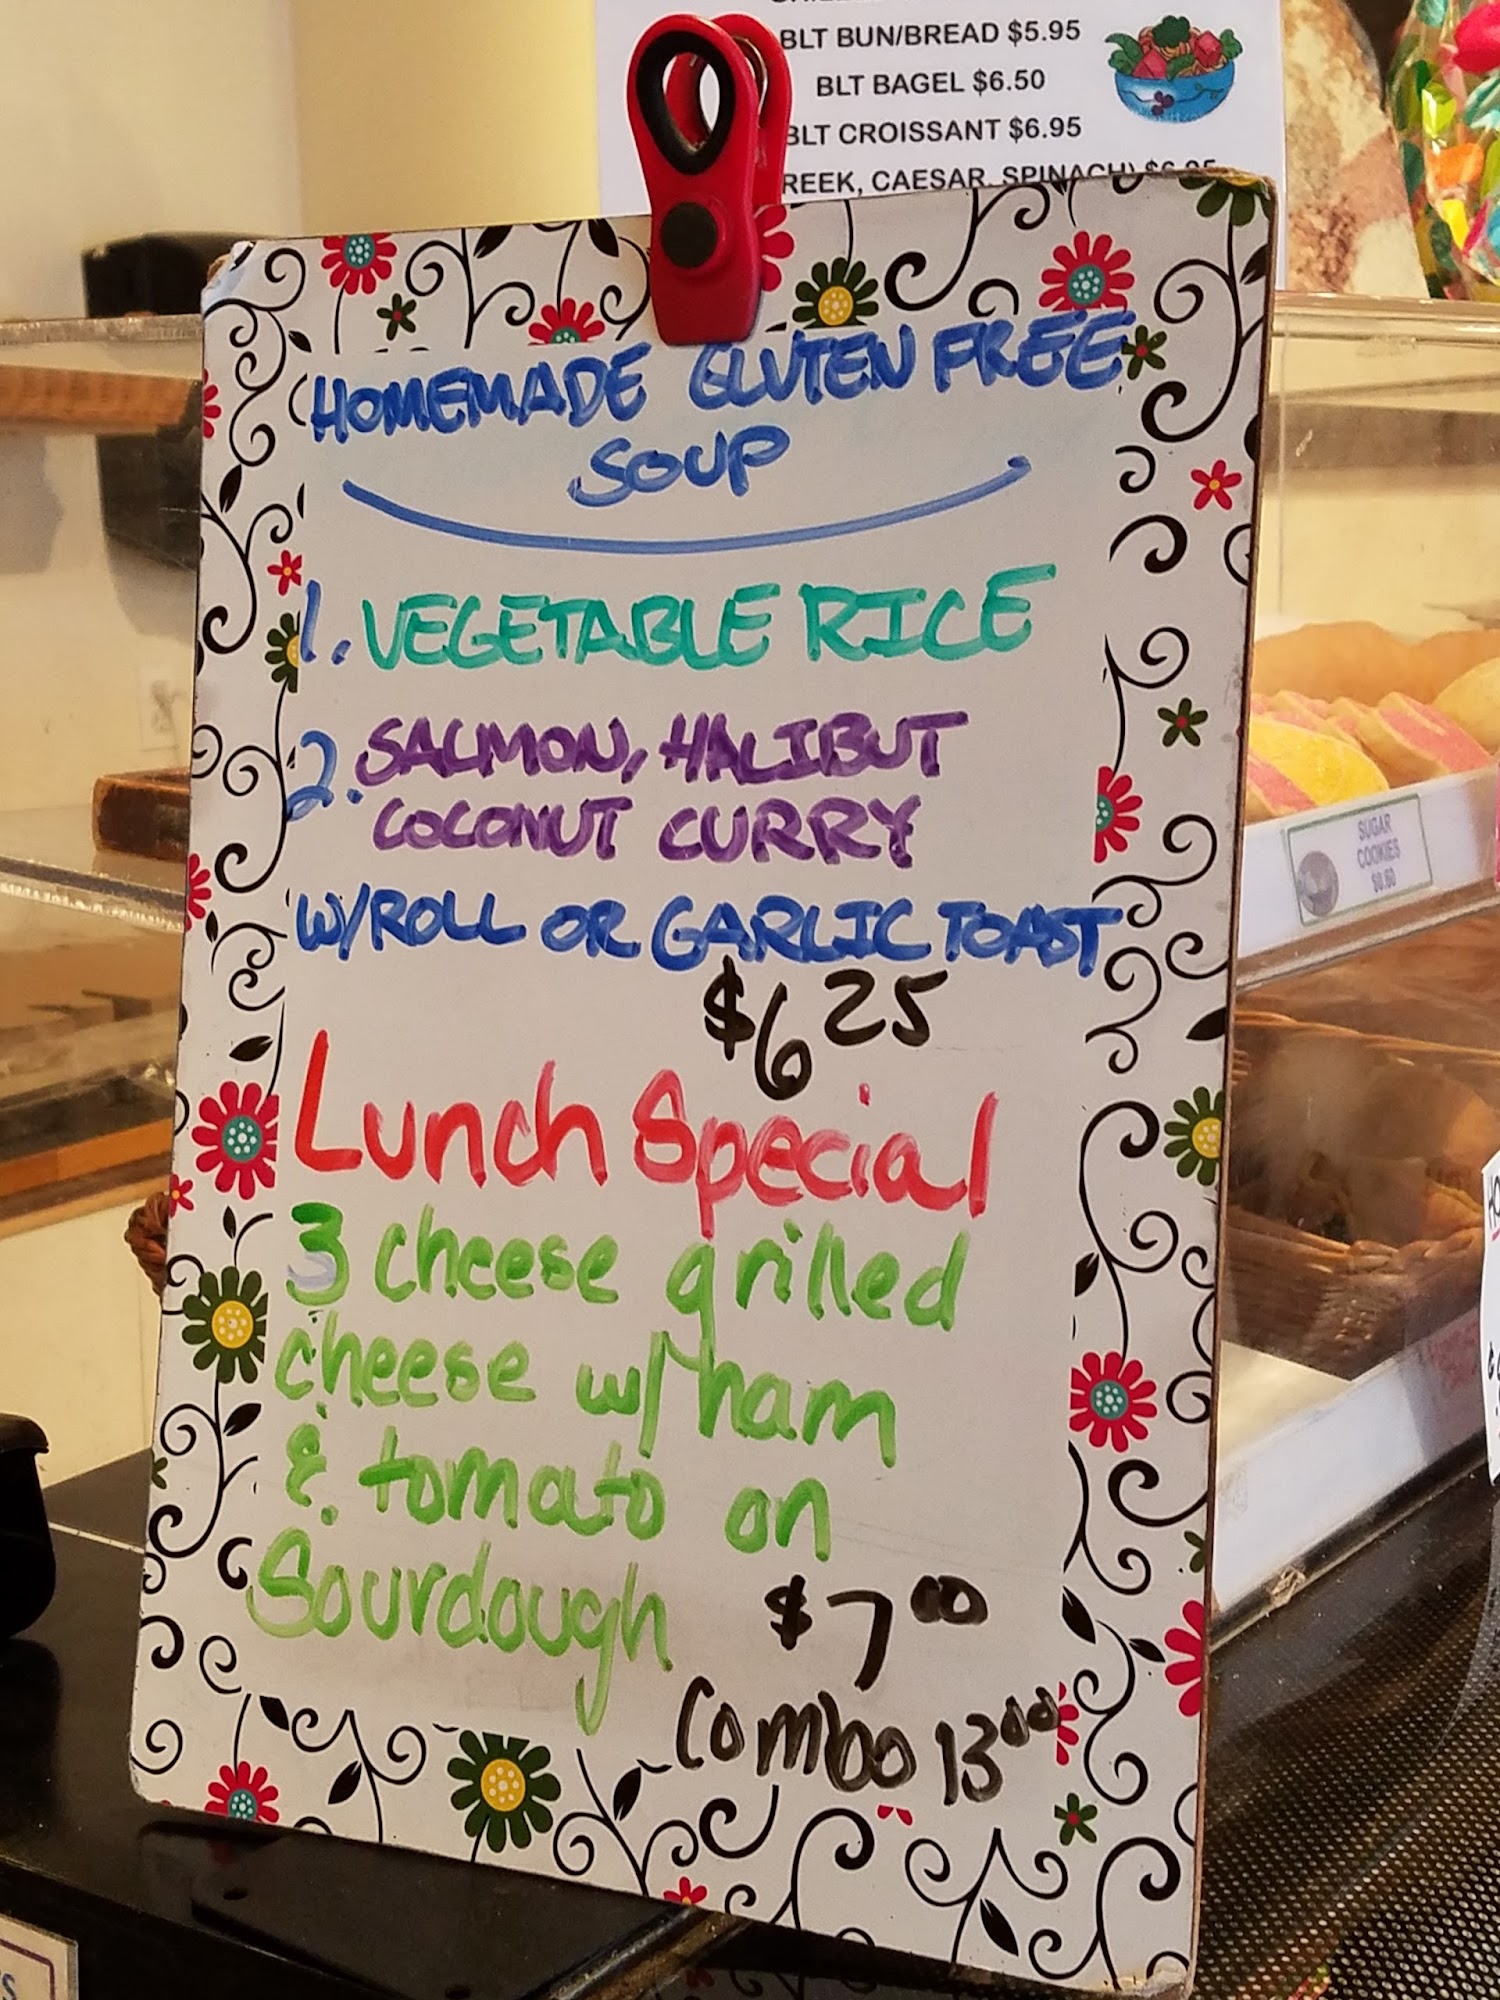 BLT BUN/BREAD $5.95
BLT BAGEL $6.50
BLT CROISSANT $6.95
REEK, CAESAR, SPINACH) $6.95
HOMEMADE GLUTEN FREE
SOUP
1. VEGETABLE RICE
2. SALMON, HALIBUT
COCONUT CURRY
W/ROLL OR GARLIC TOAST
$6 25
Lunch Special
3 cheese grilled
cheese w/ham
& tomato on
Sourdough $7 00
Combo 13 00
SUGAR
COOKIES
$0.60